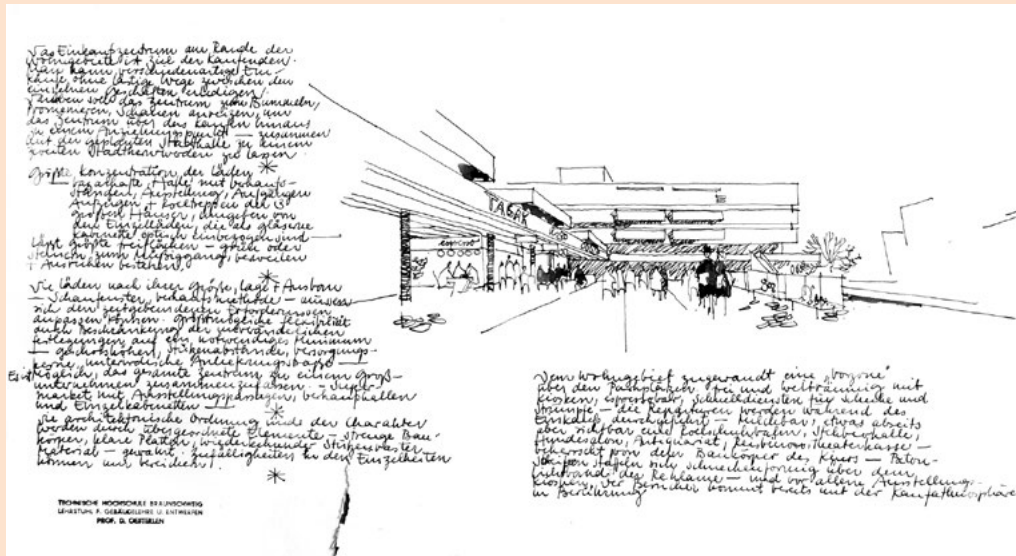 Das Einkaufzentrum am Rande der
Wohngebiete ist Ziel der Kaufenden.
Man kann verschiedenartige Ein-
käufe ohne lästige Wege zwischen den
einzelnen Geschäften erledigen.
Daneben soll das Zentrum zum Bummeln,
Promenieren, Schauen anreizen, um
das Zentrum über das Kaufen hinaus
zu einem Anziehungspunkt — zusammen
mit der geplanten Stadthalle zu einem
zweiten Stadtkern werden zu lassen
*
Größte Konzentration der Läden
— Halle mit Verkaufs-
ständen, Ausstellung, Aufgängen
Aufzügen + Rolltreppen der 3
großen Häuser, umgeben von
den Einzelläden, die als gläserne
Kabinette optisch einbezogen sind —
läßt größte Freiflächen — grün oder
steinern, zum Müßiggang, Verweilen
+ Ausruhen bestehen.
*
Die Läden nach ihrer Größe, Lage + Ausbau
— Schaufenster, Verkaufsmethode — müssen
sich den zeitgebundenen Erfordernissen
anpassen können. Größtmögliche Flexibilität
durch Beschränkung der unveränderlichen
Festlegungen auf ein notwendiges Minimum
— Geschoßhöhen, Stützenabstände, Versorgungs-
kerne, unterirdische Anlieferungsstraße —
Es ist möglich, das gesamte Zentrum zu einem Groß-
unternehmen zusammenzufassen. – Super-
market mit Ausstellungspassagen, Verkaufhallen
und Einzelkabinetten —
*
Die architektonische Ordnung und der Charakter
werden durch übergeordnete Elemente — strenge Bau-
körper, klare Platten, wiederkehrender Stützenraster
Material — gewahrt. Zufälligkeiten in den Einzelheiten
können nur bereichern!
*
TECHNISCHE HOCHSCHULE BRAUNSCHWEIG
LEHRSTUHL F. GEBÄUDELEHRE U. ENTWERFEN
PROF. D. OESTERLEN
TABAK
espresso
Dem Wohngebiet zugewandt eine
über den Parkplätzen frei und weiträumig mit
Kiosken, Espressobar, Schnelldiensten für Schuhe und
Strümpfe — die Reparaturen werden während des
Einkaufs durchgeführt — Milchbar, etwas abseits
aber sichtbar eine
Hundesalon, Antiquariat, Reisebüro, Theaterkasse —
beherrscht von dem Baukörper des Kinos —
über dem
Kiosken, der Reklame — und vor allem Ausstellungs-
in Berührung. Der Besucher kommt bereits mit der Kaufatmosphäre